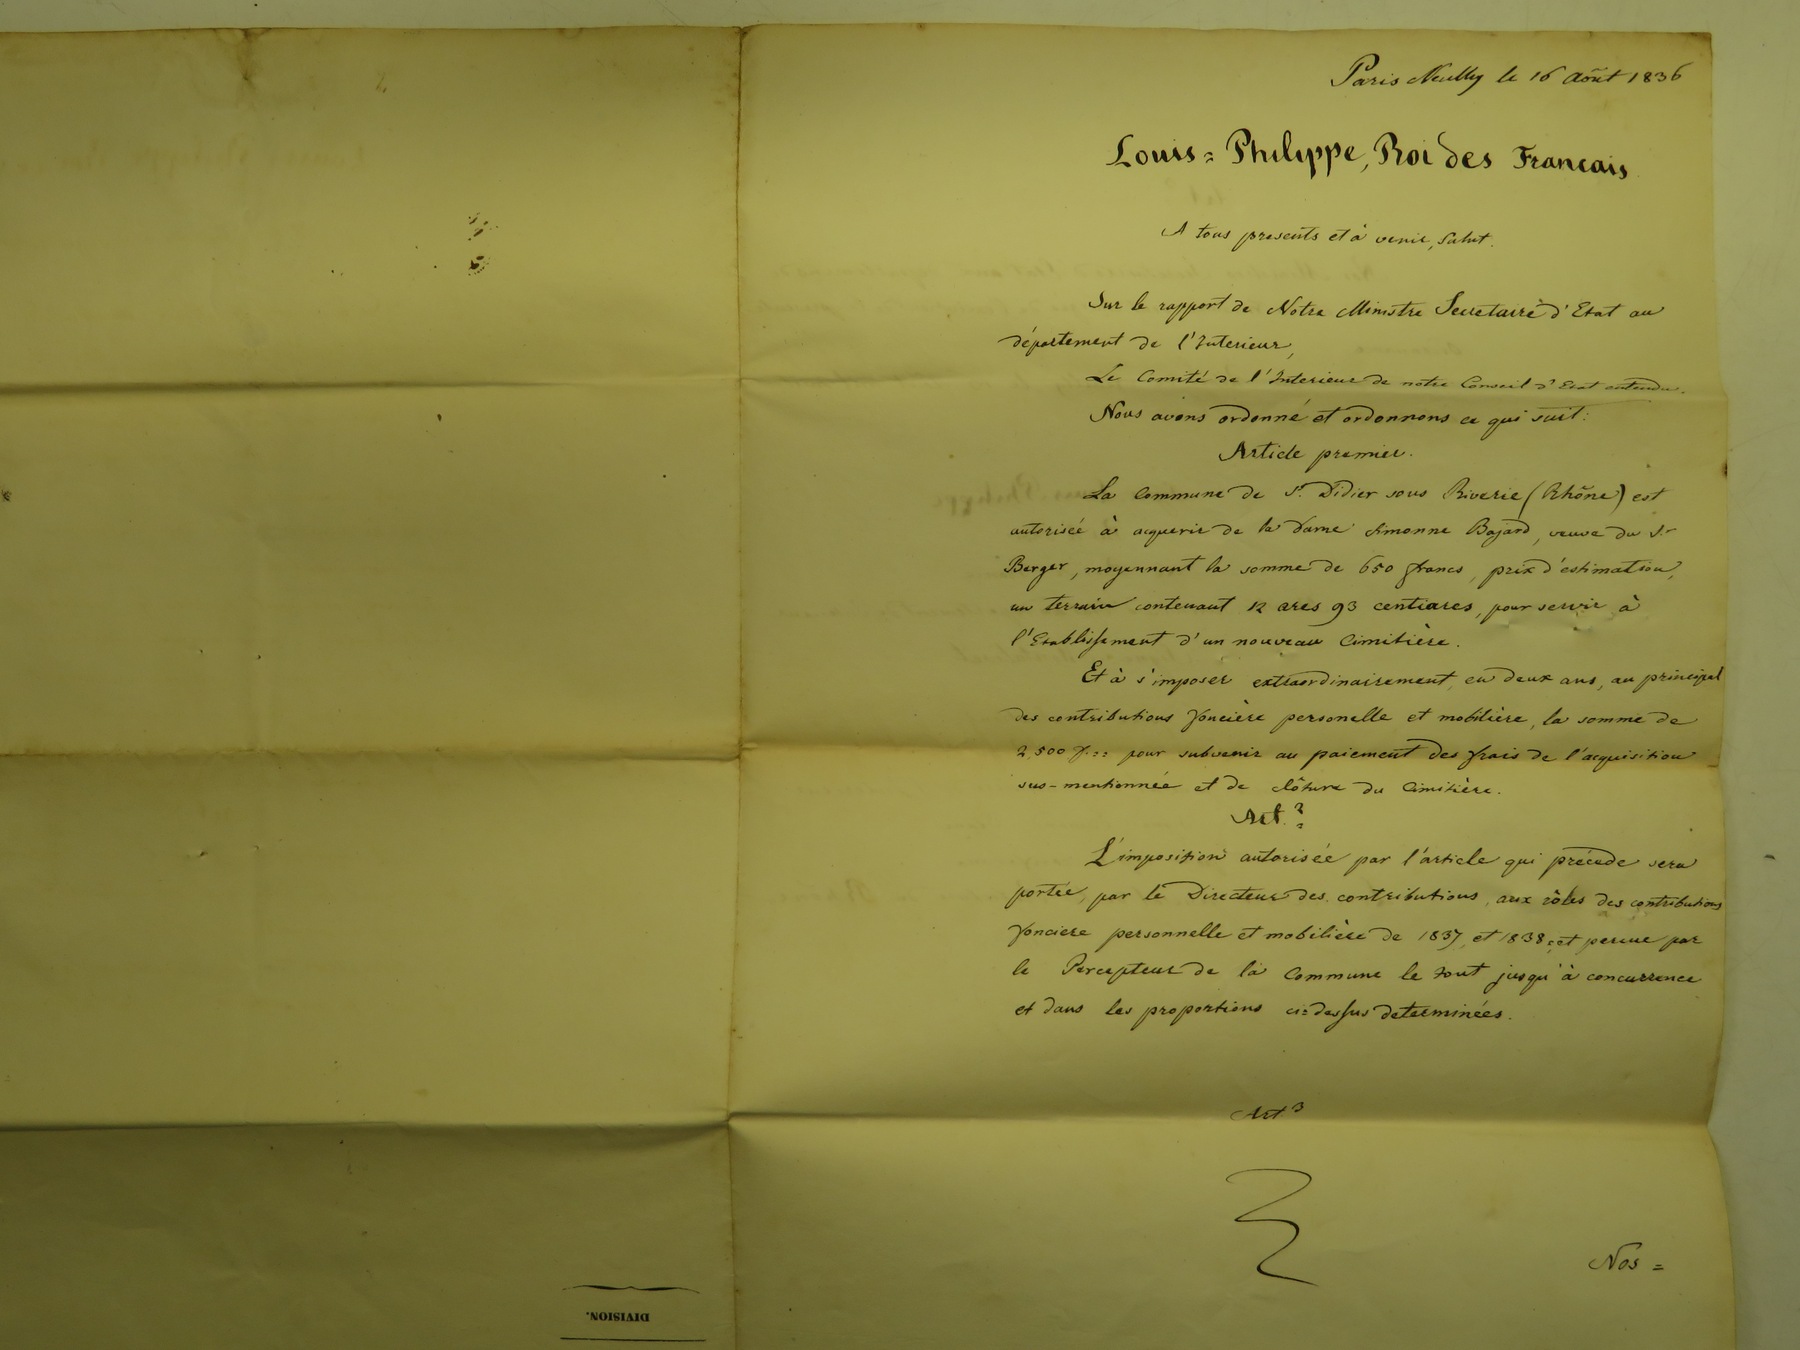 Paris Neuilly le 16 Août 1836
Louis=Philippe, Roi des Francais
A tous presents et à venir, Salut.
Sur le rapport de Notre Ministre Secretaire d'Etat au
département de l'Interieur,
Le Comité de l'Interieur de notre Conseil d'Etat entendu.
Nous avons ordonné et ordonnons ce qui suit:
Article premier.
La Commune de St. Didier sous Riverie (Rhône) est
autorisée à acquerir de la Dame Simonne Bajard, veuve du Sr
Berger, moyennant la somme de 650 francs, prix d'estimation,
un terrain contenant 12 ares 93 centiares, pour servir à
l'Etablissement d'un nouveau Cimitière.
Et à s'imposer extraordinairement, en deux ans, au principal
des contributions foncière personelle et mobilière, la somme de
2,500 f.== pour subvenir au paiement des frais de l'acquisition
sus-mentionnée et de clôture du Cimitière.
Art. 2
L'imposition autorisée par l'article qui précede sera
portée, par le Directeur des contributions, aux rôles des contributions
fonciere personnelle et mobilière de 1837, et 1838, et percue par
le Percepteur de la Commune le tout jusqu'à concurrence
et dans les proportions ci=dessus determinées.
Art 3
Nos=
DIVISION.